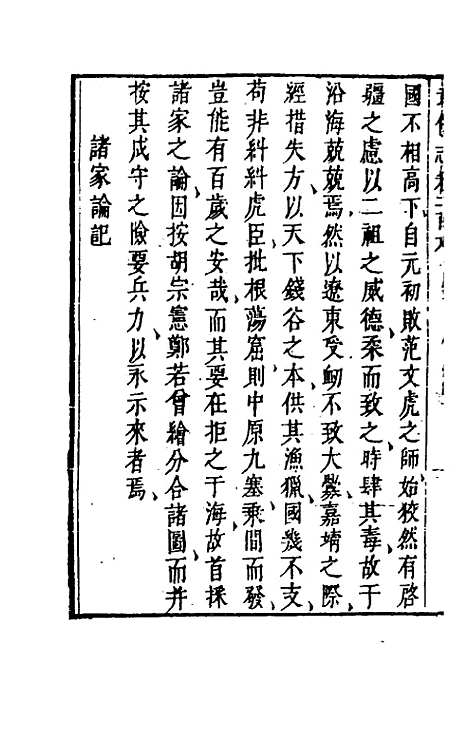 國不相高下自元初敗范文虎之師始狡然有啓
疆之慮以二祖之威德柔而致之時肆其毒故于
沿海兢兢焉然以遼東受刱不致大釁嘉靖之際
經措失方以天下錢谷之本供其漁獵國幾不支
苟非糾糾虎臣批根蕩窟則中原九塞乗間而發
豈能有百歲之安哉而其要在拒之于海故首採
諸家之論因按胡宗憲鄭若曾繪分合諸圖而并
按其戍守之險要兵力以永示來者焉
諸家論記